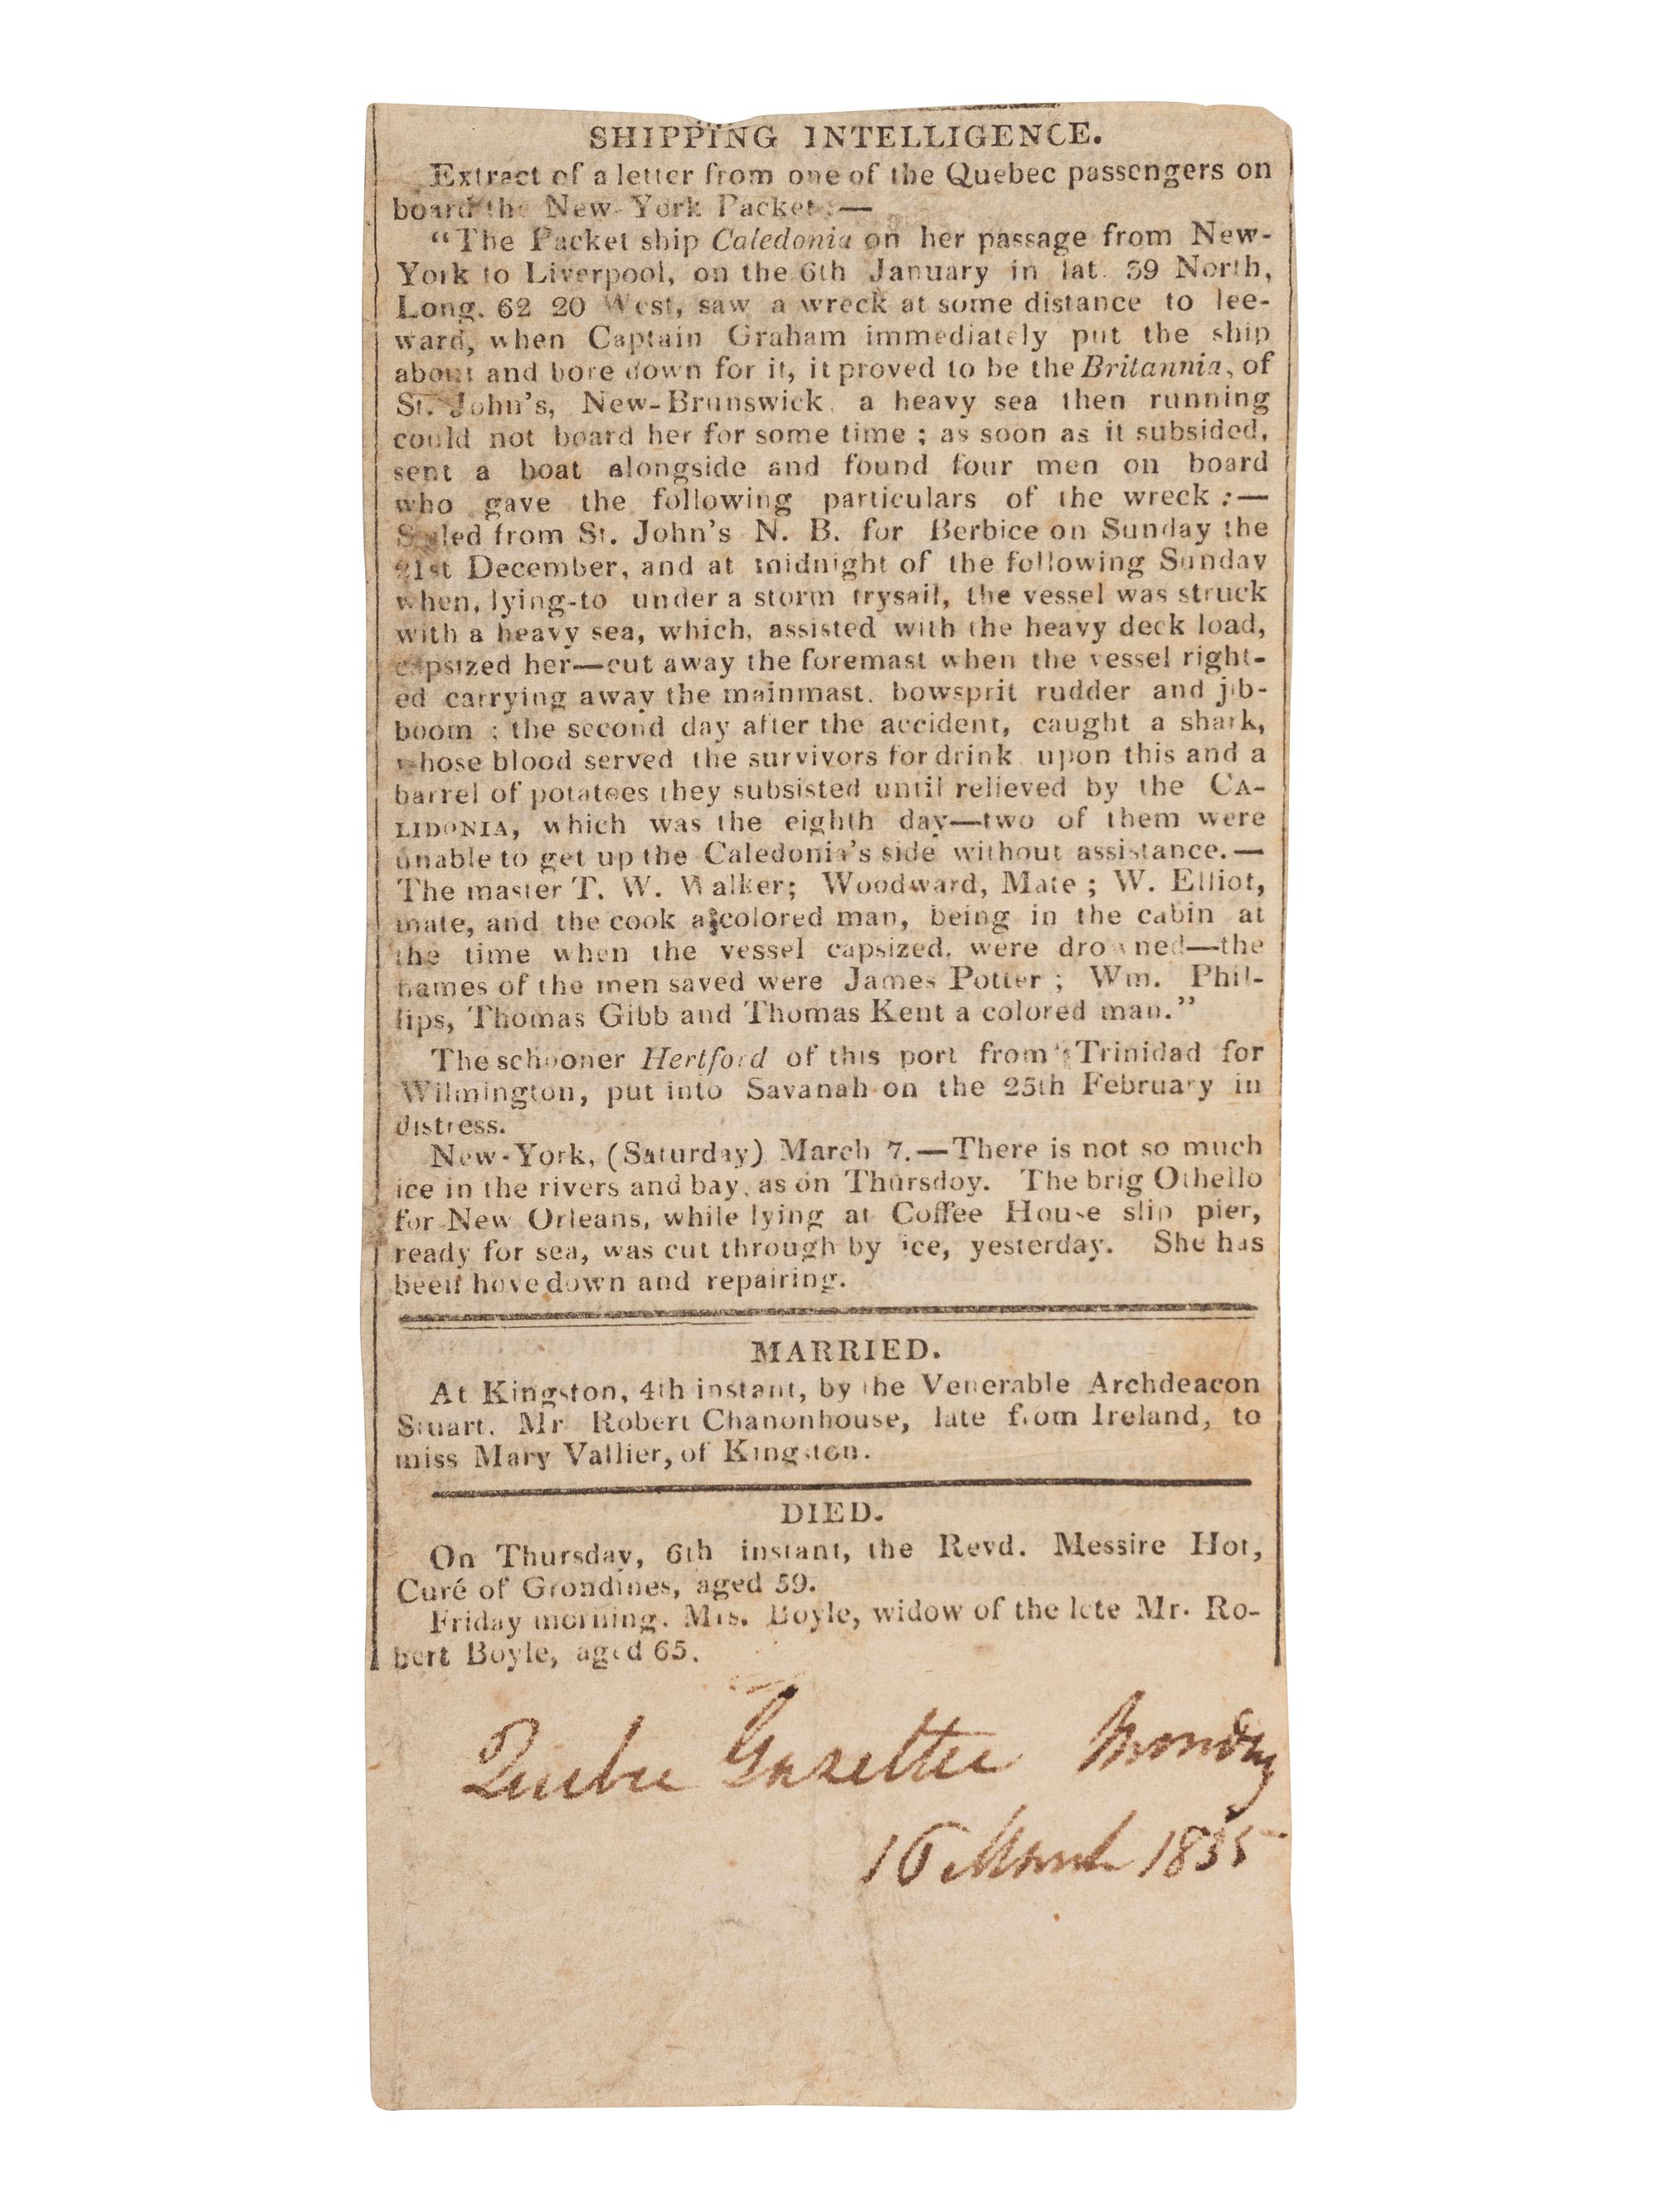 SHIPPING INTELLIGENCE.
Extract of a letter from one of the Quebec passengers on
board the New York Packet :—
“The Packet ship Caledonia on her passage from New-
York to Liverpool, on the 6th January in lat. 39 North,
Long. 62 20 West, saw a wreck at some distance to lee-
ward, when Captain Graham immediately put the ship
about and bore down for it, it proved to be the Britannia, of
St. John's, New-Brunswick, a heavy sea then running
could not board her for some time ; as soon as it subsided,
sent a boat alongside and found four men on board
who gave the following particulars of the wreck :—
Sailed from St. John's N. B. for Berbice on Sunday the
21st December, and at midnight of the following Sunday
when, lying-to under a storm trysail, the vessel was struck
with a heavy sea, which, assisted with the heavy deck load,
capsized her—cut away the foremast when the vessel right-
ed carrying away the mainmast, bowsprit rudder and jib-
boom ; the second day after the accident, caught a shark,
whose blood served the survivors for drink upon this and a
barrel of potatoes they subsisted until relieved by the CA-
LIDONIA, which was the eighth day—two of them were
unable to get up the Caledonia's side without assistance.—
The master T. W. Walker; Woodward, Mate ; W. Elliot,
mate, and the cook a colored man, being in the cabin at
the time when the vessel capsized, were drowned—the
names of the men saved were James Potter ; Wm. Phil-
lips, Thomas Gibb and Thomas Kent a colored man.”
The schooner Hertford of this port from Trinidad for
Wilmington, put into Savanah on the 25th February in
distress.
New-York, (Saturday) March 7.—There is not so much
ice in the rivers and bay, as on Thursdoy. The brig Othello
for New Orleans, while lying at Coffee House slip pier,
ready for sea, was cut through by ice, yesterday. She has
been hove down and repairing.
MARRIED.
At Kingston, 4th instant, by the Venerable Archdeacon
Stuart, Mr Robert Chanonhouse, late from Ireland, to
miss Mary Vallier, of Kingston.
DIED.
On Thursday, 6th instant, the Revd. Messire Hot,
Curé of Grondines, aged 59.
Friday morning, Mrs. Boyle, widow of the lete Mr. Ro-
bert Boyle, aged 65.
Quebec Gazette Monday
16 March 1835